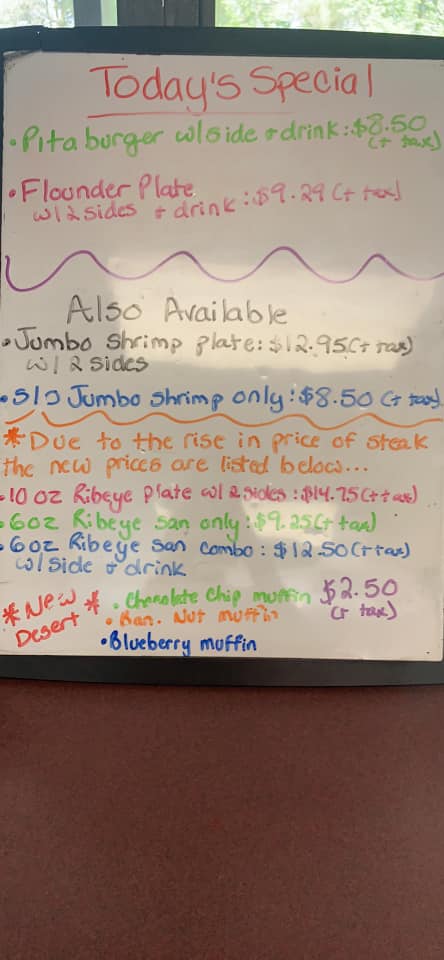 Today's Special
• Pita burger w/side + drink: $8.50
(+ tax)
• Flounder Plate
w/2 sides + drink: $9.29 (+ tax)
Also Available
• Jumbo Shrimp plate: $12.95 (+ tax)
w/ 2 sides
• S/O Jumbo Shrimp only: $8.50 (+ tax)
* Due to the rise in price of steak
the new prices are listed below...
• 10 oz Ribeye Plate w/ 2 sides: $14.75 (+ tax)
• 6oz Ribeye san only: $9.25 (+ tax)
• 6oz Ribeye San Combo: $12.50 (+ tax)
w/ side + drink
* New *
Desert
• Chocolate Chip muffin $2.50
• Ban. Nut muffin (+ tax)
• Blueberry muffin